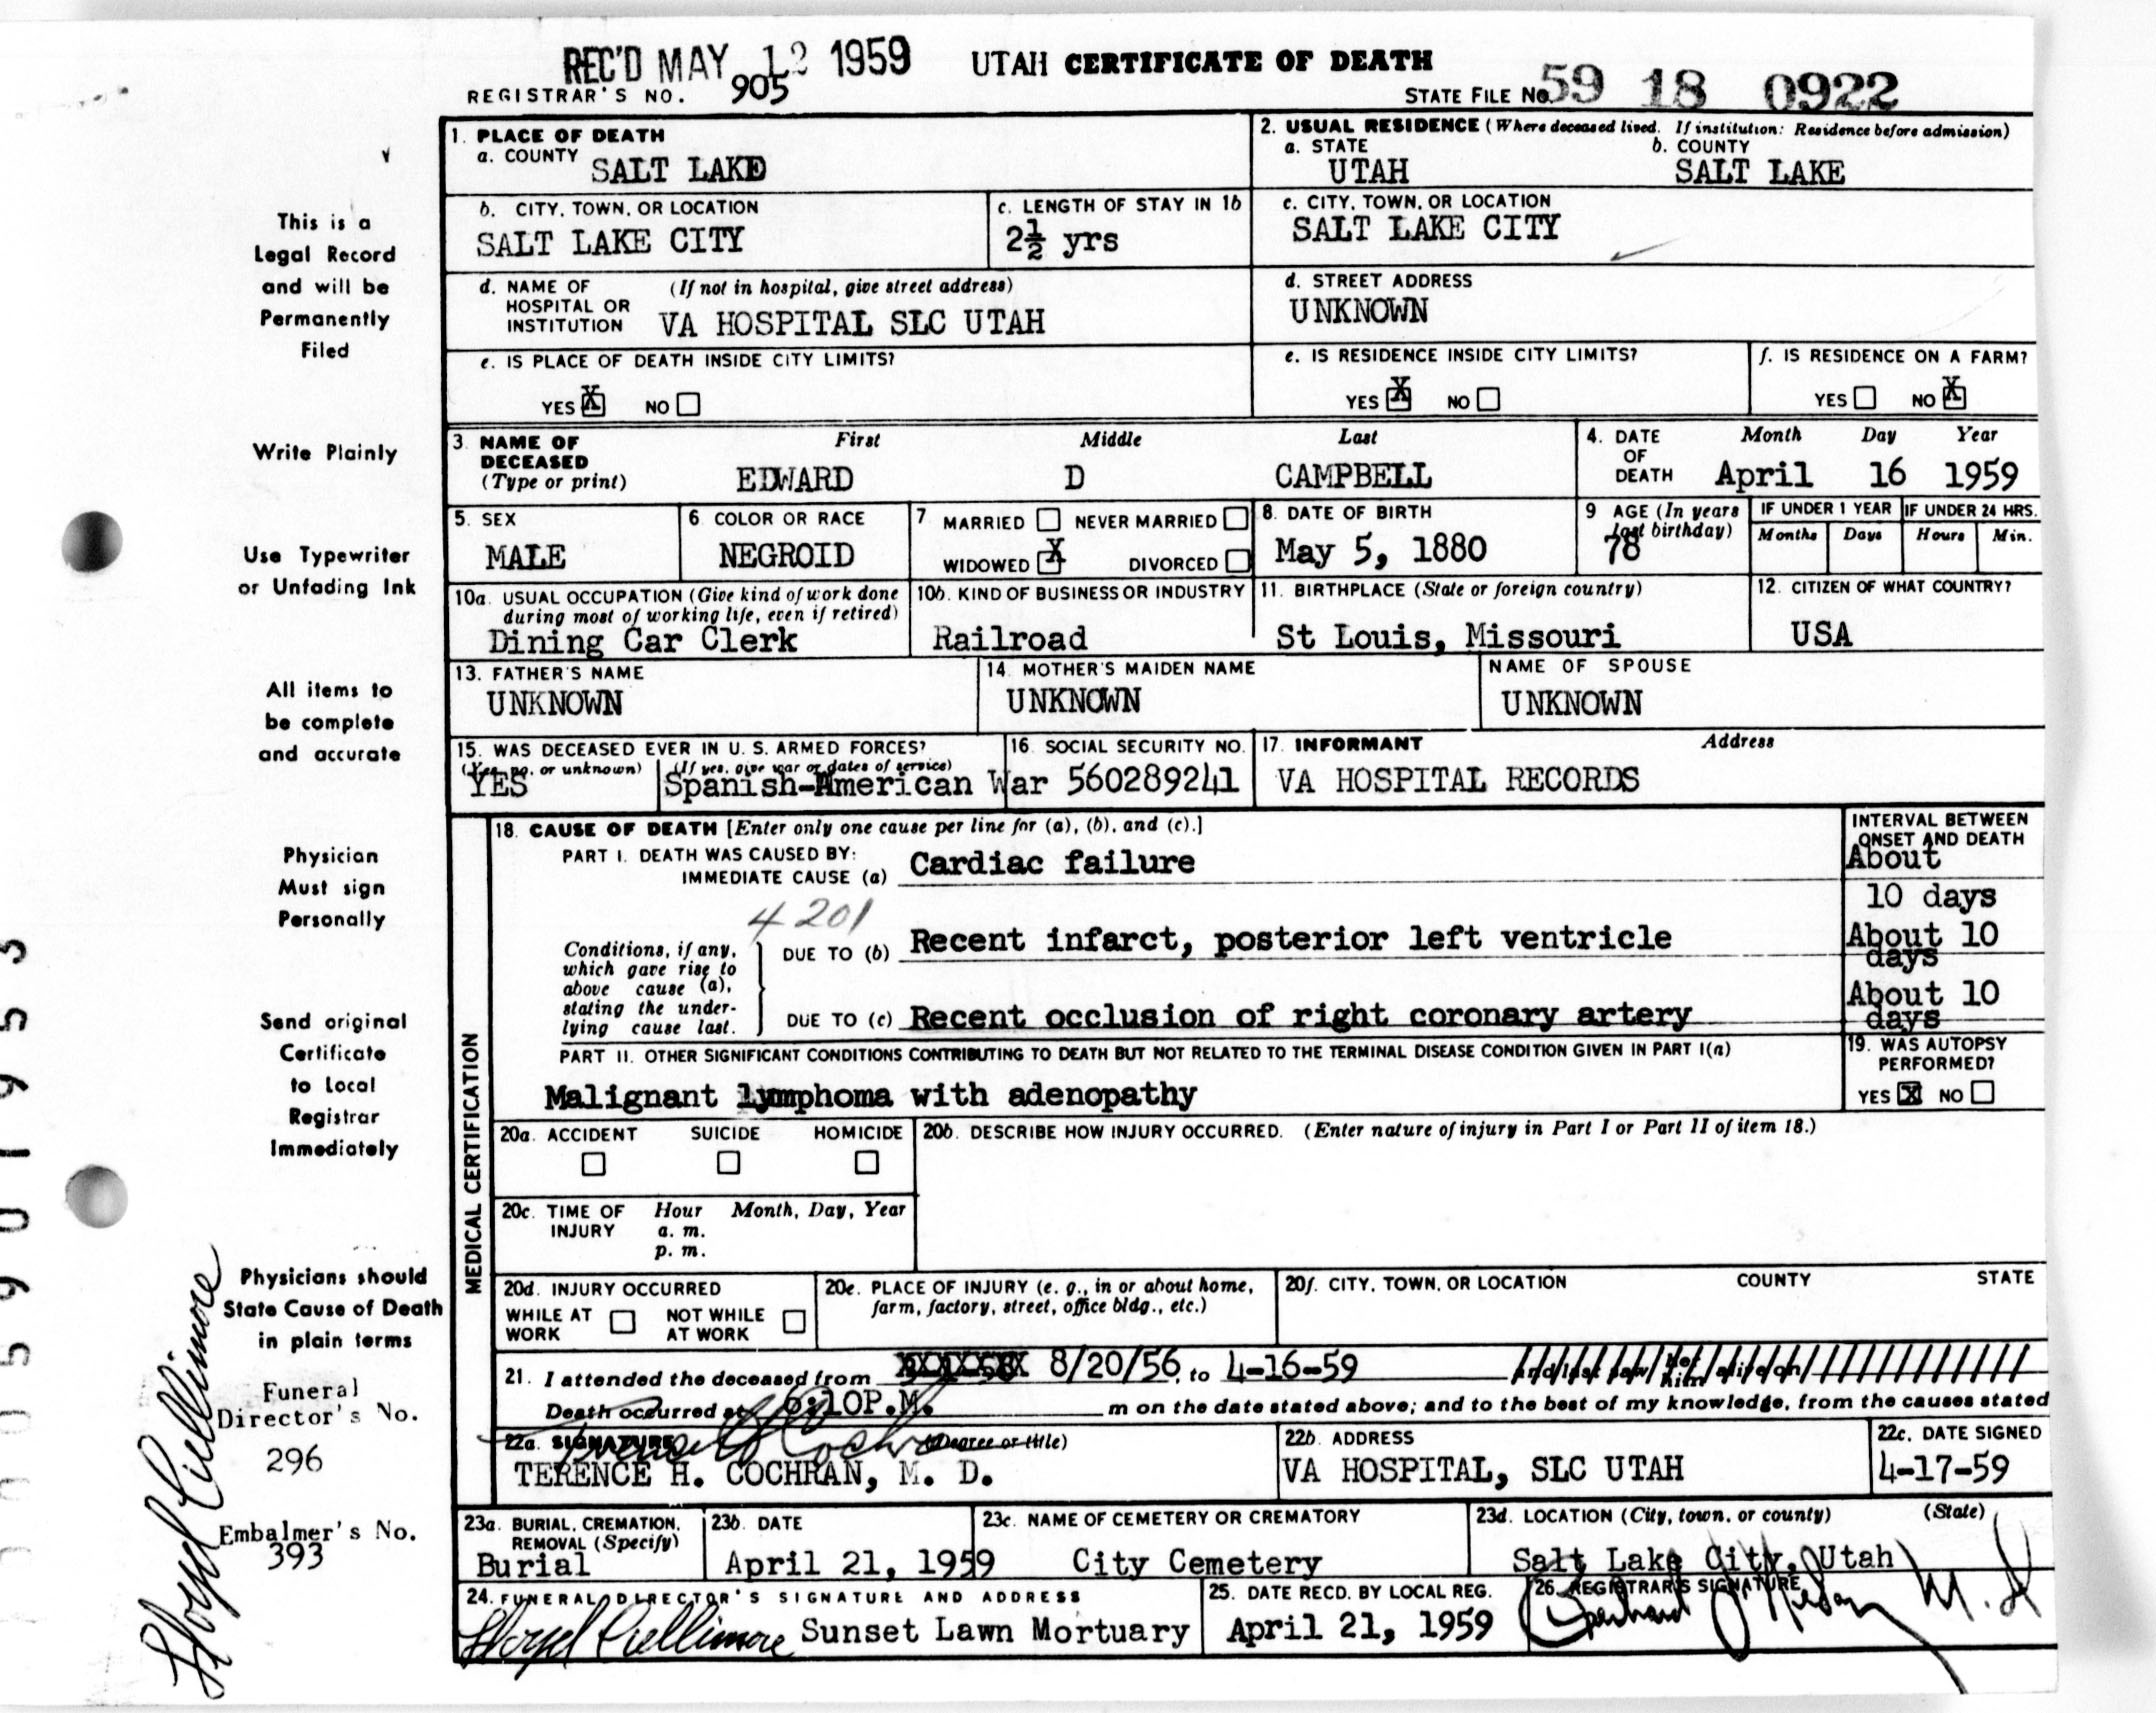 REC'D MAY 12 1959 UTAH CERTIFICATE OF DEATH
REGISTRAR'S NO. 905 STATE FILE No. 59 18 0922
1. PLACE OF DEATH
a. COUNTY SALT LAKE
2. USUAL RESIDENCE (Where deceased lived. If institution: Residence before admission)
a. STATE UTAH b. COUNTY SALT LAKE
b. CITY, TOWN, OR LOCATION SALT LAKE CITY
c. LENGTH OF STAY IN 1b 2½ yrs
c. CITY, TOWN, OR LOCATION SALT LAKE CITY
d. NAME OF HOSPITAL OR INSTITUTION (If not in hospital, give street address) VA HOSPITAL SLC UTAH
d. STREET ADDRESS UNKNOWN
e. IS PLACE OF DEATH INSIDE CITY LIMITS?
YES X NO
e. IS RESIDENCE INSIDE CITY LIMITS?
YES X NO
f. IS RESIDENCE ON A FARM?
YES NO X
3. NAME OF DECEASED (Type or print) First Middle Last
EDWARD D CAMPBELL
4. DATE OF DEATH Month Day Year
April 16 1959
5. SEX MALE
6 COLOR OR RACE NEGROID
7 MARRIED NEVER MARRIED
WIDOWED X DIVORCED
8. DATE OF BIRTH May 5, 1880
9 AGE (In years last birthday) 78
IF UNDER 1 YEAR Months Days
IF UNDER 24 HRS. Hours Min.
10a. USUAL OCCUPATION (Give kind of work done during most of working life, even if retired)
Dining Car Clerk
10b. KIND OF BUSINESS OR INDUSTRY
Railroad
11. BIRTHPLACE (State or foreign country)
St Louis, Missouri
12. CITIZEN OF WHAT COUNTRY?
USA
13. FATHER'S NAME
UNKNOWN
14. MOTHER'S MAIDEN NAME
UNKNOWN
NAME OF SPOUSE
UNKNOWN
15. WAS DECEASED EVER IN U. S. ARMED FORCES?
(Yes, no, or unknown) (If yes, give war or dates of service)
YES Spanish-American War
16. SOCIAL SECURITY NO.
560289241
17. INFORMANT Address
VA HOSPITAL RECORDS
MEDICAL CERTIFICATION
18. CAUSE OF DEATH [Enter only one cause per line for (a), (b), and (c).]
INTERVAL BETWEEN ONSET AND DEATH
PART I. DEATH WAS CAUSED BY:
IMMEDIATE CAUSE (a) Cardiac failure About 10 days
4201
Conditions, if any, which gave rise to above cause (a), stating the underlying cause last.
DUE TO (b) Recent infarct, posterior left ventricle About 10 days
DUE TO (c) Recent occlusion of right coronary artery About 10 days
PART II. OTHER SIGNIFICANT CONDITIONS CONTRIBUTING TO DEATH BUT NOT RELATED TO THE TERMINAL DISEASE CONDITION GIVEN IN PART I(a)
Malignant lymphoma with adenopathy
19. WAS AUTOPSY PERFORMED?
YES X NO
20a. ACCIDENT SUICIDE HOMICIDE
20b. DESCRIBE HOW INJURY OCCURRED. (Enter nature of injury in Part I or Part II of item 18.)
20c. TIME OF INJURY Hour Month, Day, Year
a. m.
p. m.
20d. INJURY OCCURRED
WHILE AT WORK NOT WHILE AT WORK
20e. PLACE OF INJURY (e. g., in or about home, farm, factory, street, office bldg., etc.)
20f. CITY, TOWN, OR LOCATION COUNTY STATE
21. I attended the deceased from 8/20/56, to 4-16-59 and last saw her him alive on
Death occurred at 6:10P.M. m on the date stated above; and to the best of my knowledge, from the causes stated
22a. SIGNATURE (Degree or title)
Terence H Cochran
TERENCE H. COCHRAN, M. D.
22b. ADDRESS
VA HOSPITAL, SLC UTAH
22c. DATE SIGNED
4-17-59
23a. BURIAL, CREMATION, REMOVAL (Specify)
Burial
23b. DATE
April 21, 1959
23c. NAME OF CEMETERY OR CREMATORY
City Cemetery
23d. LOCATION (City, town, or county) (State)
Salt Lake City, Utah
24. FUNERAL DIRECTOR'S SIGNATURE AND ADDRESS
Sunset Lawn Mortuary
25. DATE RECD. BY LOCAL REG.
April 21, 1959
26. REGISTRAR'S SIGNATURE
This is a
Legal Record
and will be
Permanently
Filed
Write Plainly
Use Typewriter
or Unfading Ink
All items to
be complete
and accurate
Physician
Must sign
Personally
Send original
Certificate
to Local
Registrar
Immediately
Physicians should
State Cause of Death
in plain terms
Funeral
Director's No.
296
Embalmer's No.
393